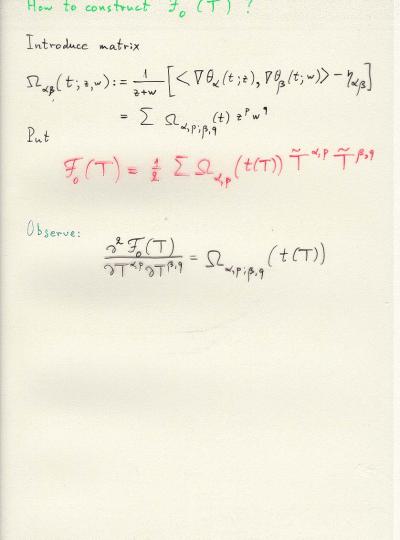 How to construct F₀(T) ?
Introduce matrix
Ω_{αβ}(t; z, w) := 1/(z+w) [<∇θ_α(t; z), ∇θ_β(t; w)> − η_{αβ}]
= Σ Ω_{α,p;β,q}(t) z^p w^q
Put
F₀(T) = 1/2 Σ Ω_{α,p}(t(T)) T̃^{α,p} T̃^{β,q}
Observe:
∂²F₀(T)/∂T^{α,p}∂T^{β,q} = Ω_{α,p;β,q}(t(T))